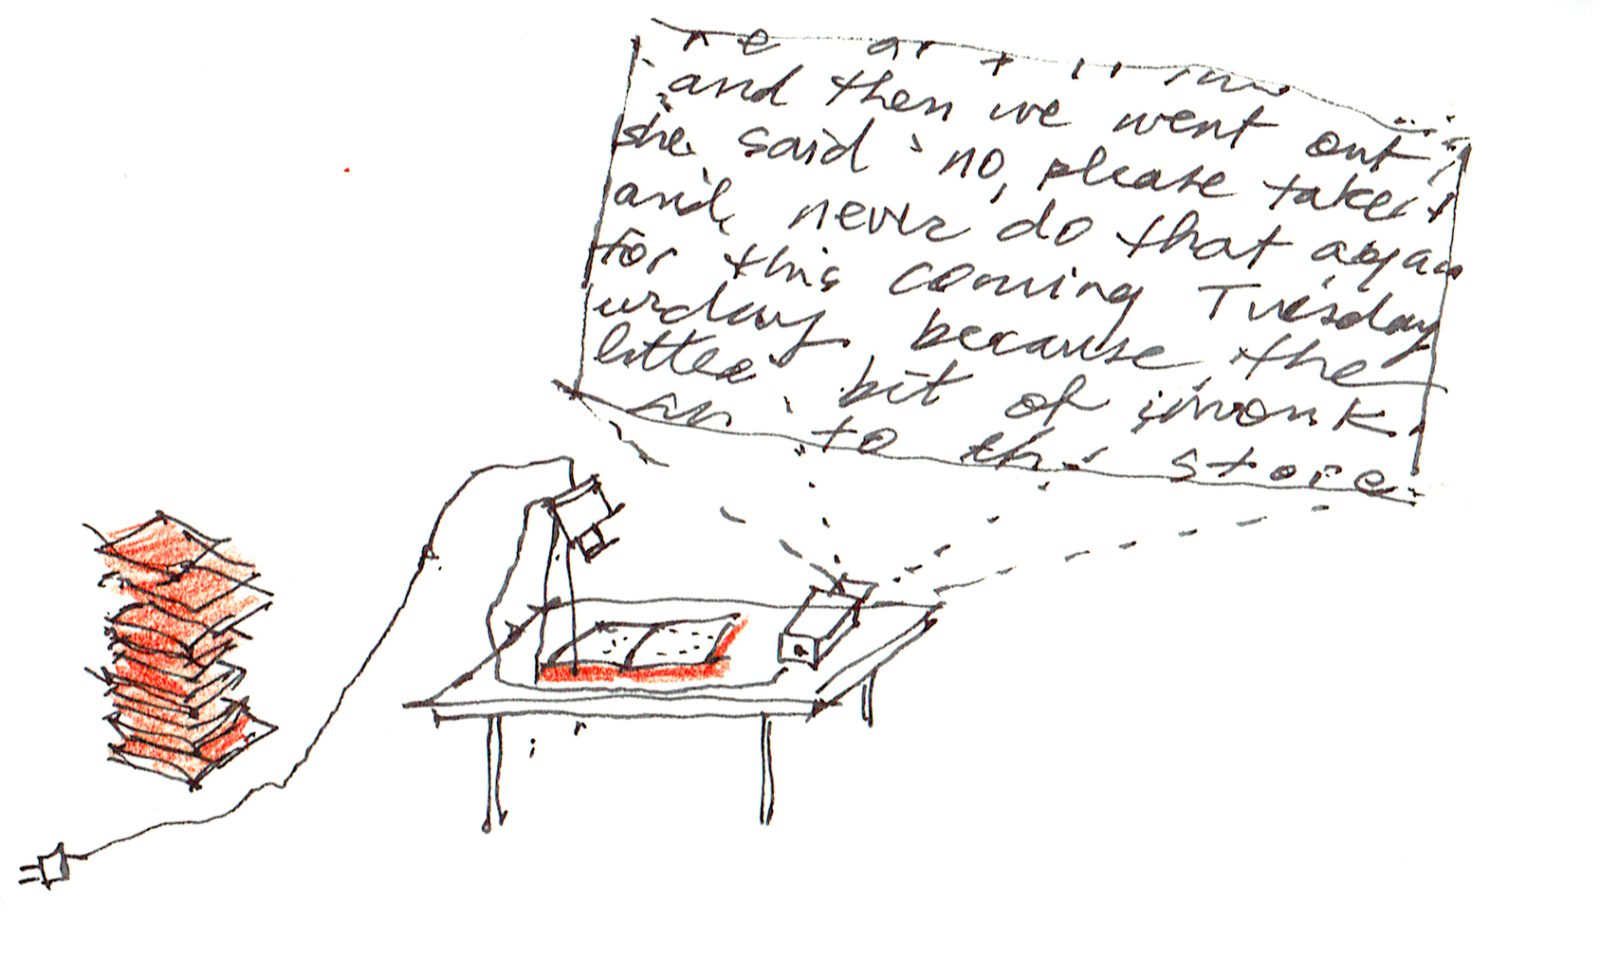 and then we went out,
she said "no, please take
and never do that again
for this coming Tuesday
urday because the
little bit of
to the store